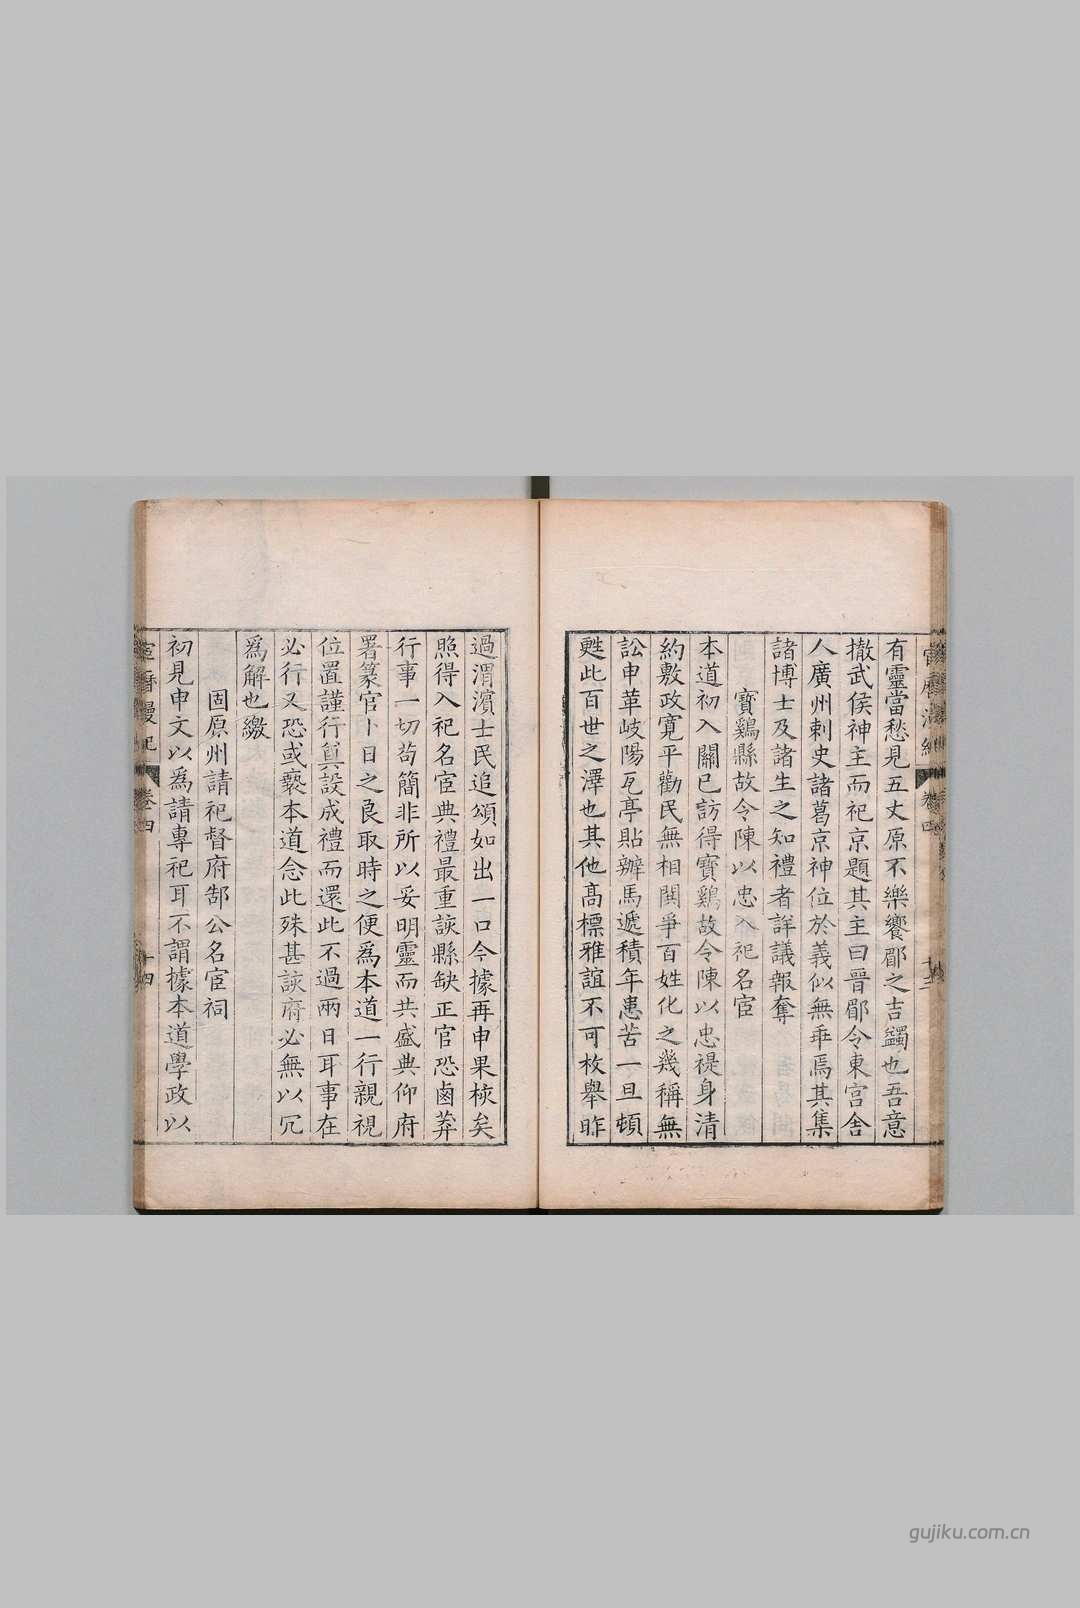 有靈當愁見五丈原不樂饗郿之吉蠲也吾意
撤武侯神主而祀京題其主曰晉郿令東宮舍
人廣州刺史諸葛京神位於義似無乖焉其集
諸博士及諸生之知禮者詳議報奪
寶鷄縣故令陳以忠入祀名宦
本道初入關已訪得寶鷄故令陳以忠禔身清
約敷政寬平勸民無相鬩爭百姓化之幾稱無
訟申革岐陽瓦亭貼辦馬遞積年患苦一旦頓
甦此百世之澤也其他高標雅誼不可枚舉昨
過渭濱士民追頌如出一口今據再申果核矣
照得入祀名宦典禮最重該縣缺正官恐鹵莽
行事一切苟簡非所以妥明靈而共盛典仰府
署篆官卜日之良取時之便爲本道一行親視
位置謹行奠設成禮而還此不過兩日耳事在
必行又恐或褻本道念此殊甚該府必無以冗
爲解也繳
固原州請祀督府郜公名宦祠
初見申文以爲請專祀耳不謂據本道學政以
宦曆漫紀 卷四 十四
gujiku.com.cn